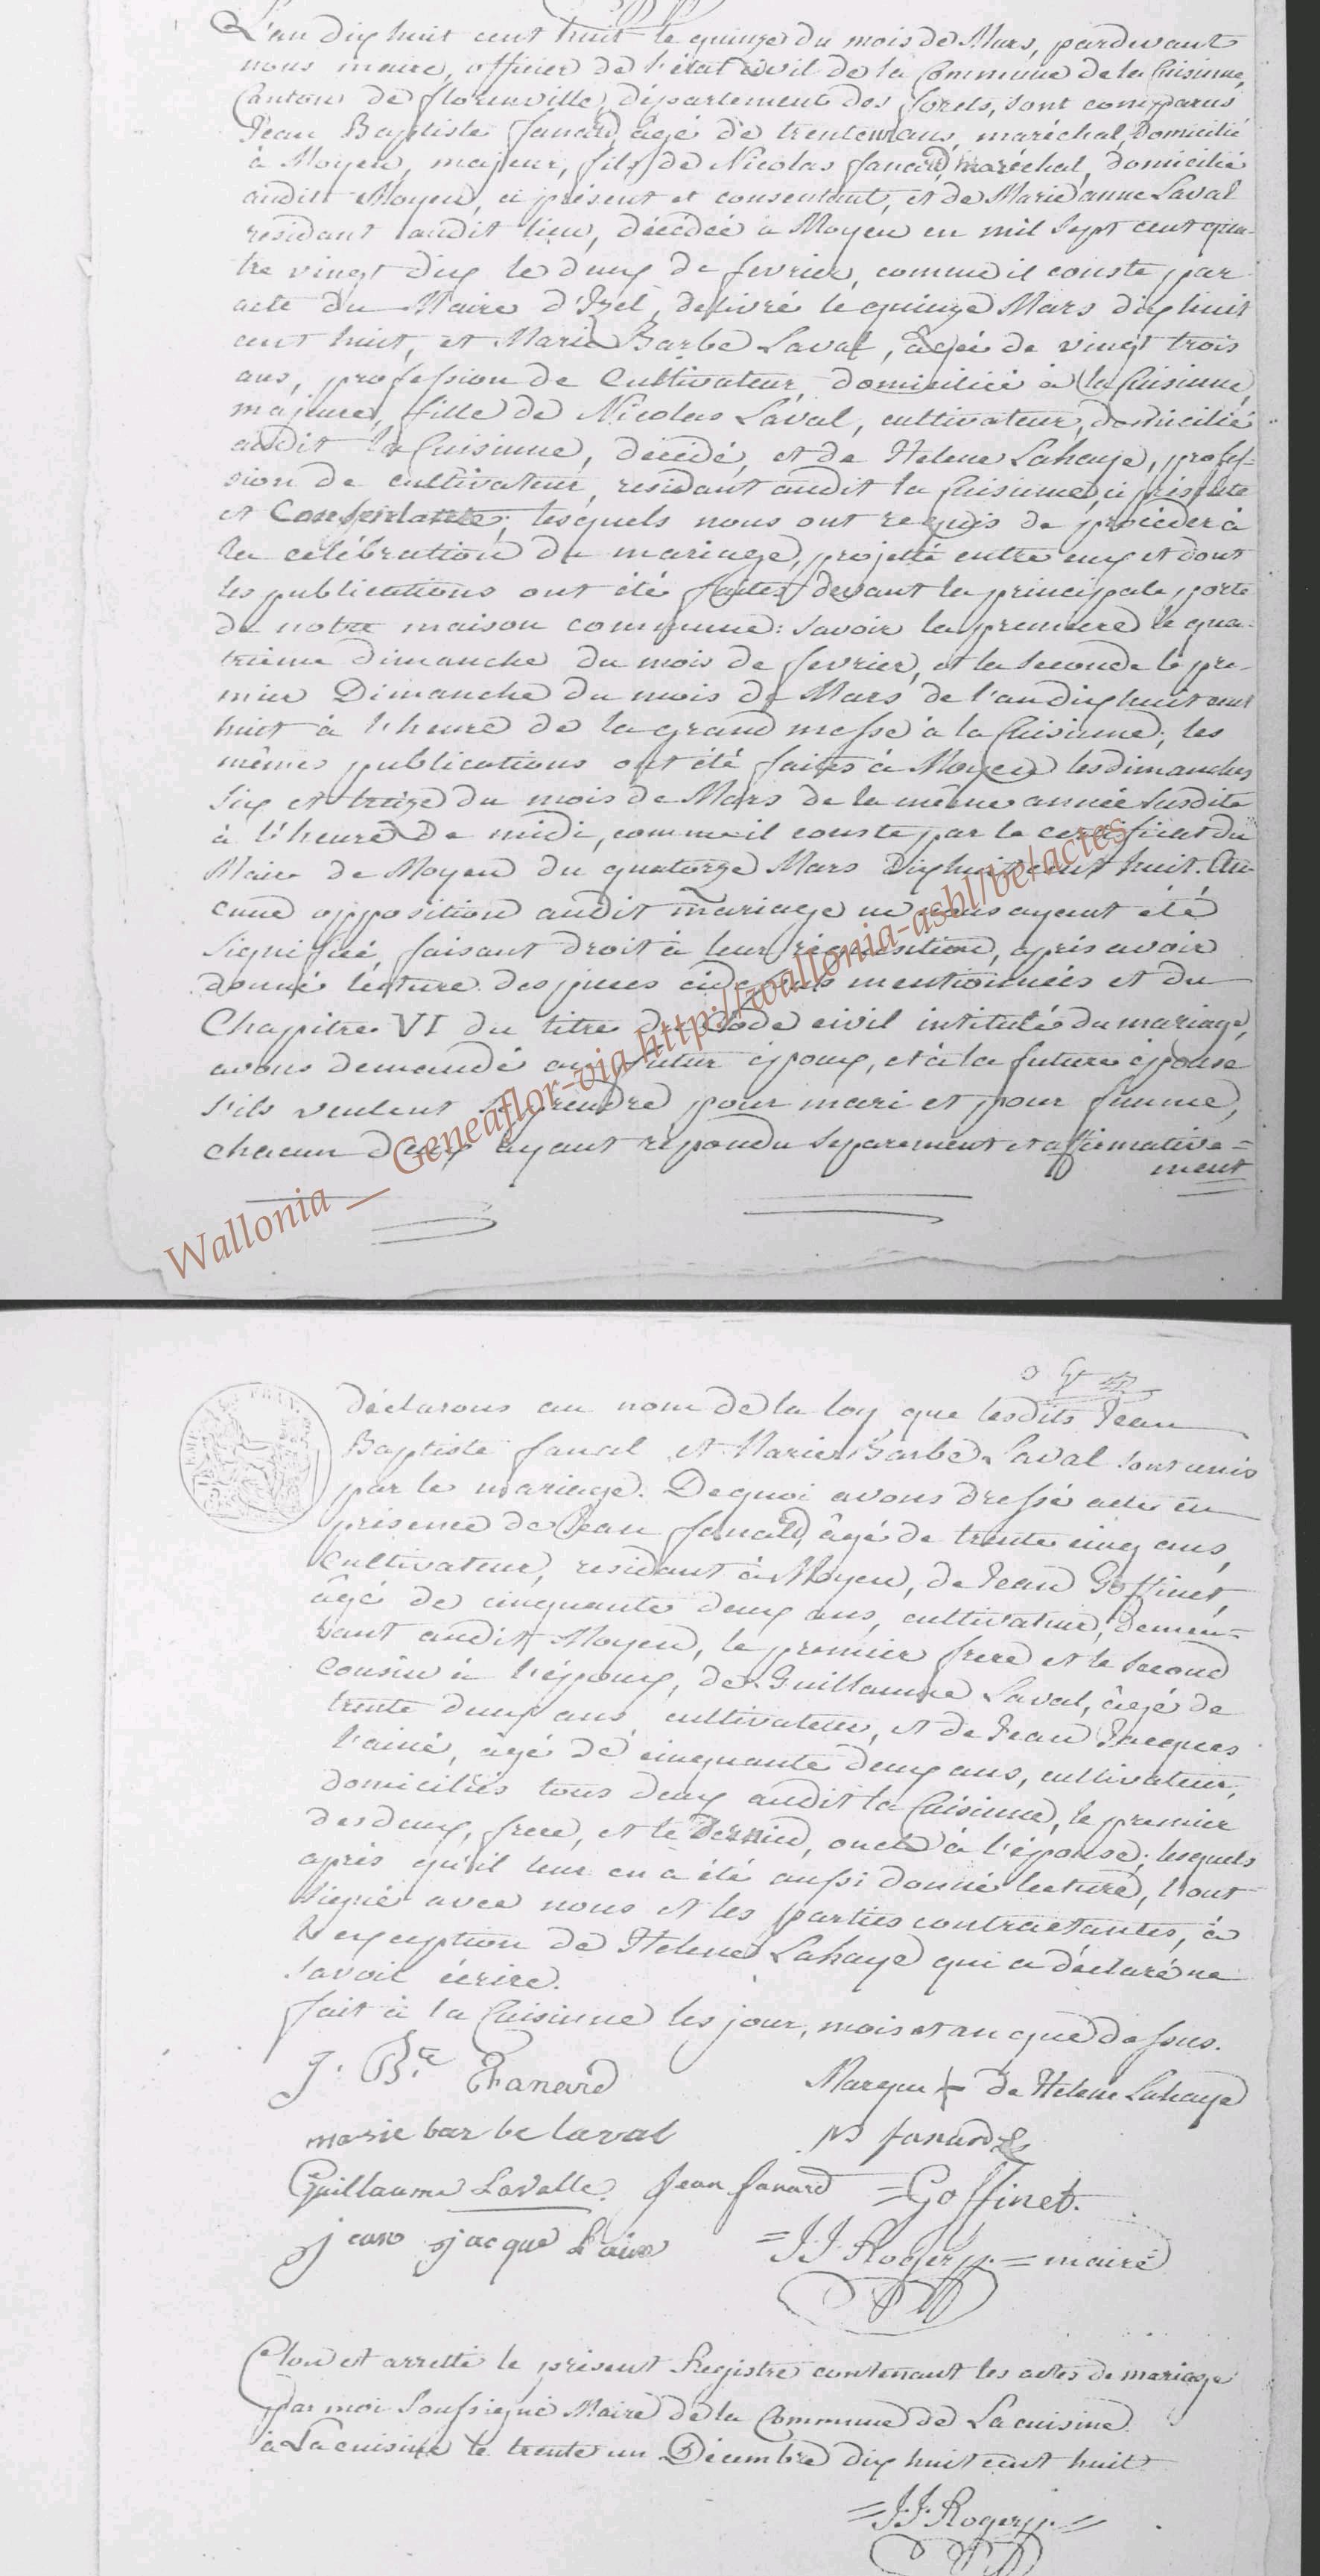 L'an dix huit cent huit le quinze du mois de Mars, pardevant
nous maire, officier de l'état civil de la Commune de la Cuisinne,
Canton de florenville, département des forets, sont comparus
Jean Baptiste fanard, âgé de trente ans, maréchal, domicilié
à Moyen, majeur, fils de Nicolas fanard, maréchal, domicilié
audit Moyen, ci présent et consentant, et de Marie anne Laval
résidant audit lieu, décédée à Moyen en mil sept cent qua-
tre vingt dix le deux de fevrier, comme il conste par
acte du Maire d'Izel, délivré le quinze Mars dix huit
cent huit, et Marie Barbe Laval, âgée de vingt trois
ans, profession de Cultivateur, domiciliée à la Cuisinne,
majeure, fille de Nicolas Laval, cultivateur, domicilié
audit la Cuisinne, décédé, et de Helene Lahaye, profes-
sion de cultivateur, residant audit la Cuisinne, ci présente
et Consentante; lesquels nous ont requis de procéder à
la célébration du mariage, projetté entre eux et dont
les publications ont été faites devant la principale porte
de notre maison commune: savoir la premiere le qua-
trième dimanche du mois de fevrier, et la seconde le pre-
mier Dimanche du mois de Mars de l'an dix huit cent
huit à l'heure de la grand messe à la Cuisinne; les
mêmes publications ont été faites à Moyen les dimanches
six et treize du mois de Mars de la même année susdite
à l'heure de midi, comme il conste par le certificat du
Maire de Moyen du quatorze Mars dix huit cent huit. Au-
cune opposition audit mariage ne nous ayant été
signifiée, faisant droit à leur réquisition, après avoir
donné lecture des pieces ci dessus mentionnées et du
Chapitre VI du titre du Code civil intitulé du mariage,
avons demandé au futur époux, et à la future épouse
s'ils veulent se prendre pour mari et pour femme,
chacun d'eux ayant répondu séparement et affirmative=
ment
Wallonia __ Geneaflor-via http://wallonia-asbl/be/actes
déclarons au nom de la loy que lesdits Jean
Baptiste fanal et Marie Barbe Laval sont unis
par le mariage. De quoi avons dressé acte en
présence de Jean fanard, âgé de trente cinq ans,
Cultivateur, residant à Moyen, de Jean Goffinet,
âgé de cinquante deux ans, cultivateur, demeu=
rant audit Moyen, le premier frere et le second
Cousin à l'époux, de Guillaume Laval, âgé de
trente deux ans, cultivateur, et de Jean Jacques
l'ainé, âgé de cinquante deux ans, cultivateur,
domiciliés tous deux audit la Cuisinne, le premier
des deux, frere, et le dernier, oncle à l'épouse; lesquels
après qu'il leur en a été aussi donné lecture, l'ont
signé avec nous et les parties contractantes, à
l'exception de Helene Lahaye qui a déclaré ne
savoir écrire.
fait à la Cuisinne les jour, mois et an que dessus.
J. Bte Fanard
Marque + de Helene Lahaye
marie barbe laval
N fanard
Guillaume Lavalle. Jean fanard =Goffinet.
jean jacque Laine
=J.J. Rogery.= maire
Clos et arretté le présent Registre contenant les actes de mariage
par moi soussigné Maire de la Commune de Lacuisine.
à Lacuisine le trente un Décembre dix huit cent huit
=J.J. Rogery.=